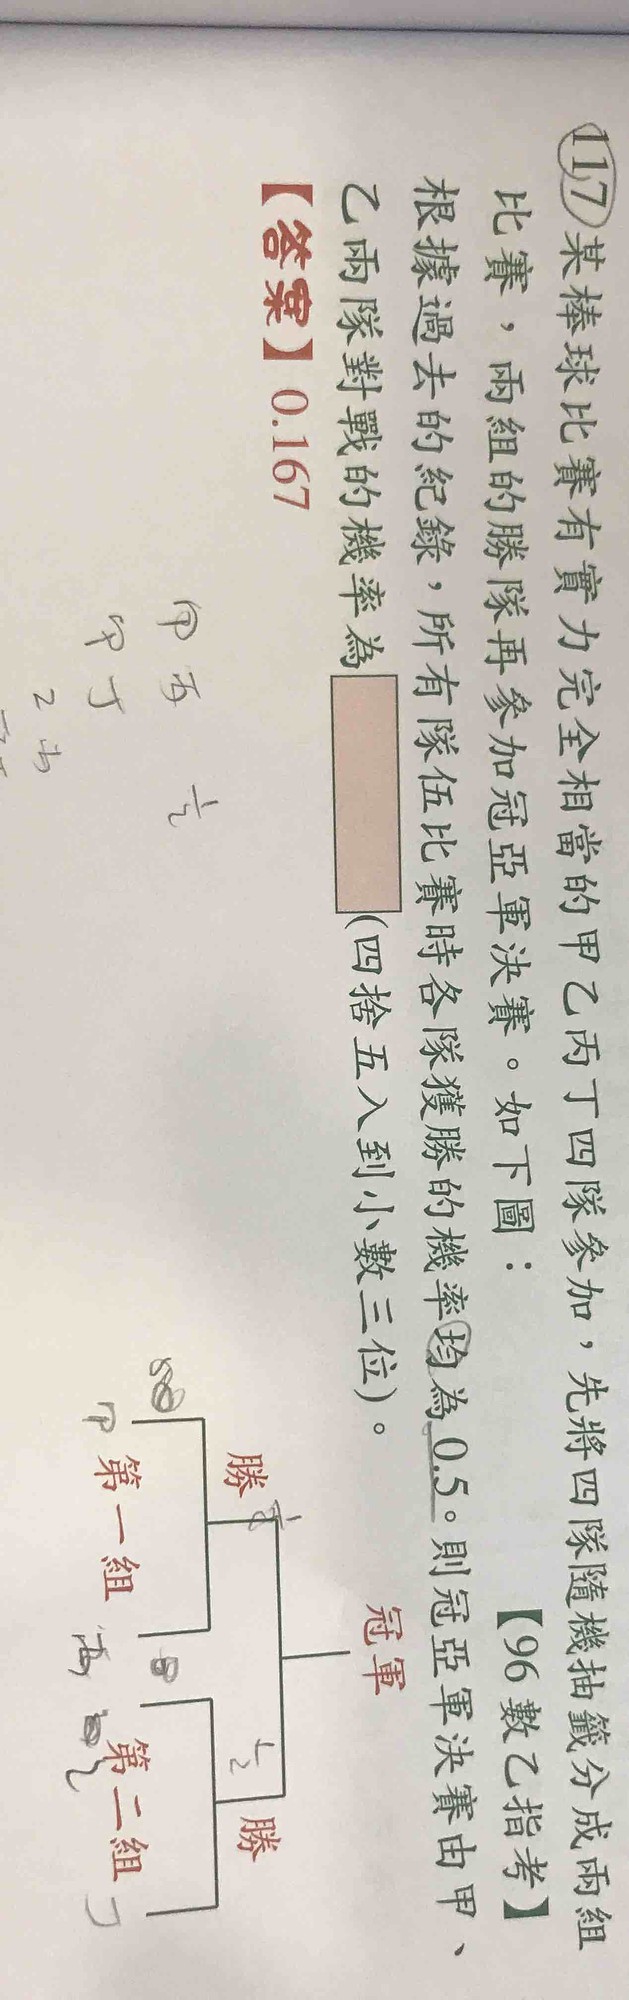 117 某棒球比賽有實力完全相當的甲乙丙丁四隊參加，先將四隊隨機抽籤分成兩組
比賽，兩組的勝隊再參加冠亞軍決賽。如下圖： 【96 數乙指考】
根據過去的紀錄，所有隊伍比賽時各隊獲勝的機率均為 0.5。則冠亞軍決賽由甲、
乙兩隊對戰的機率為 (四捨五入到小數三位)。
【答案】0.167
冠軍
勝 勝
1/2
第一組 第二組
甲 乙 丁
甲丙 1/2
甲丁